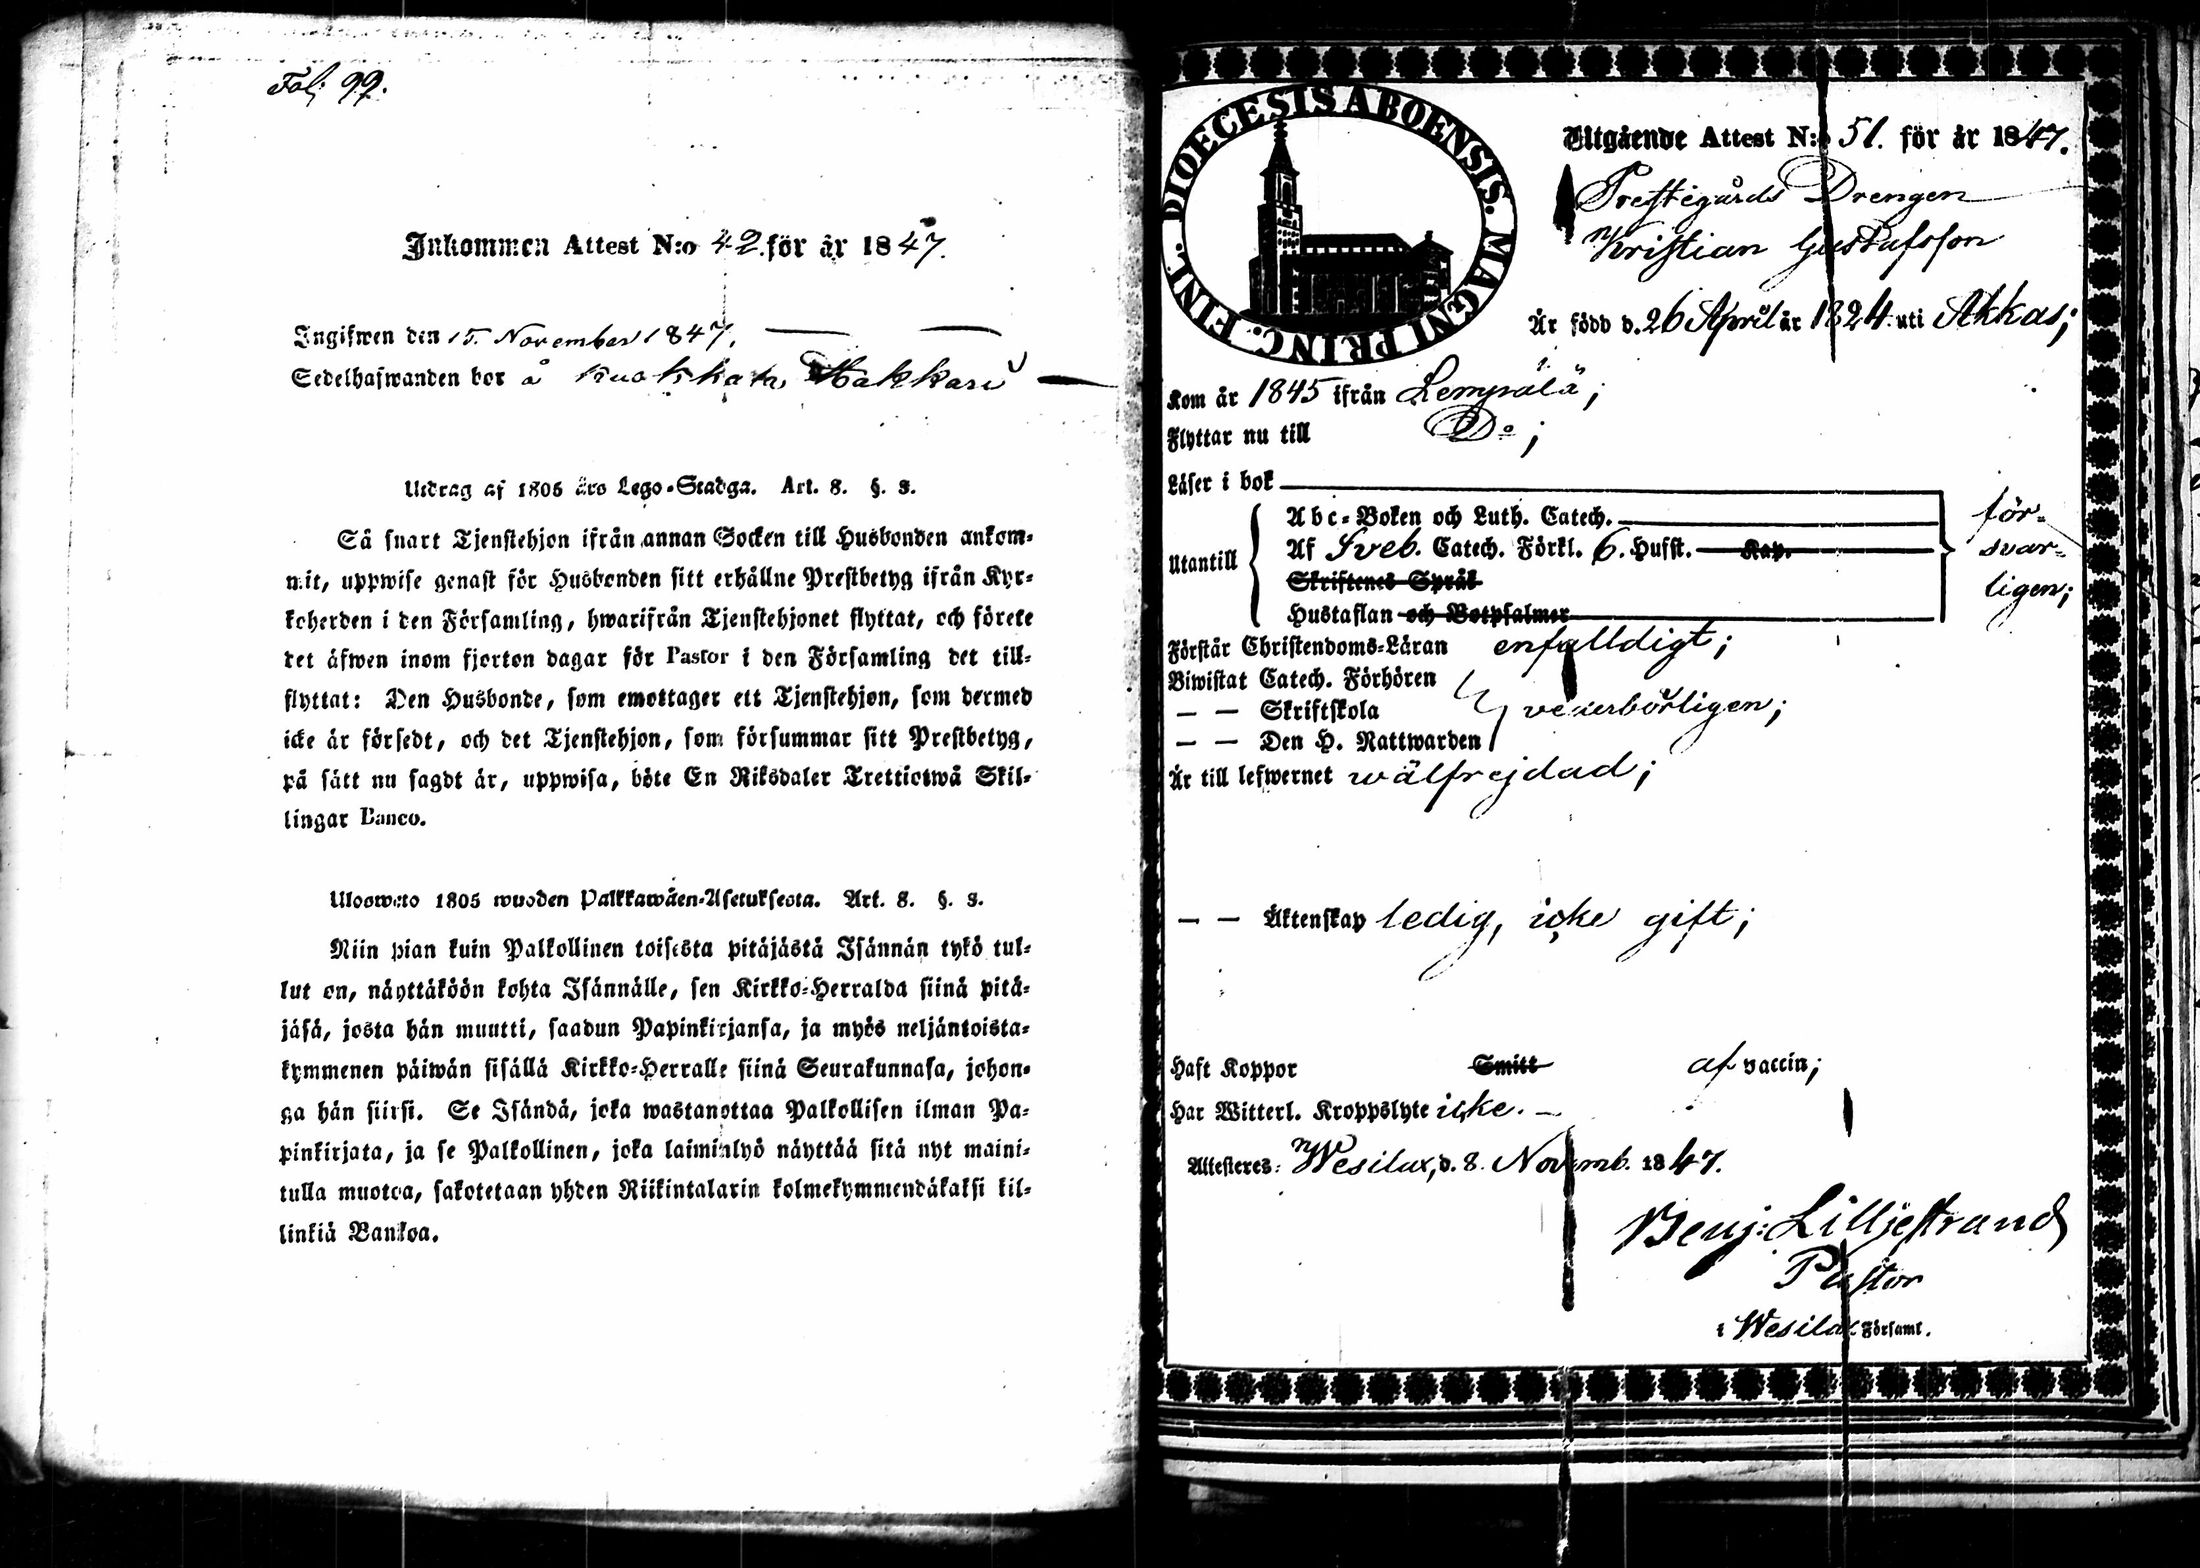 Fol; 99.
Inkommen Attest N:o 42. för år 1847.
Ingifwen den 15. November 1847.
Sedelhafwanden bor å Kuokkala, Hakkari
Utdrag af 1805 års Lego-Stadga. Art. 8. §. 3.
Så snart Tjenstehjon ifrån annan Socken till Husbonden ankom-
mit, uppwise genast för Husbonden sitt erhållne Prestbetyg ifrån Kyr-
koherden i den Församling, hwarifrån Tjenstehjonet flyttat, och förete
det äfwen inom fjorton dagar för Pastor i den Församling det till-
flyttat: Den Husbonde, som emottager ett Tjenstehjon, som dermed
icke är försedt, och det Tjenstehjon, som försummar sitt Prestbetyg,
på sätt nu sagdt är, uppwisa, böte En Riksdaler Trettiotwå Skil-
lingar Banco.
Ulosweto 1805 wuoden Palkkawäen-Asetuksesta. Art. 8. §. 3.
Niin pian kuin Palkollinen toisesta pitäjästä Isännän tykö tul-
lut on, näyttäköön kohta Isännälle, sen Kirkko-Herralda siinä pitä-
jäsä, josta hän muutti, saadun Papinkirjansa, ja myös neljäntoista-
kymmenen päiwän sisällä Kirkko-Herralle siinä Seurakunnasa, johon-
ga hän siirsi. Se Isändä, joka wastanottaa Palkollisen ilman Pa-
pinkirjata, ja se Palkollinen, joka laiminlyö näyttää sitä nyt maini-
tulla muotoa, sakotetaan yhden Riikintalarin kolmekymmendäkaksi kil-
linkiä Bankoa.
DIOECESIS ABOENSIS. MAGNI PRINC. FINL.
Utgående Attest N:o 51. för år 1847.
Prestegårds Drengen
Kristian Gustafsson
Är född d. 26 April år 1824. uti Akkas;
Kom år 1845 ifrån Lempälä;
Flyttar nu till Do;
Läser i bok
Abc-Boken och Luth. Catech.
Utantill Af Sveb. Catech. Förkl. 6. Hufst. Kap.
Skriftenes Språk
Hustaflan och Botpsalmer
för-
svar-
ligen;
Förstår Christendoms-Läran enfalldigt;
Biwistat Catech. Förhören
— — Skriftskola vederbörligen;
— — Den H. Nattwarden
Är till lefwernet wälfrejdad;
— — Äktenskap ledig, icke gift;
Haft Koppor Smitt af vaccin;
Har Witterl. Kroppslyte icke.
Attesteres: Wesilax, d. 8. Novemb. 1847.
Benj: Lilljestrand
Pastor
i Wesilax Församl.